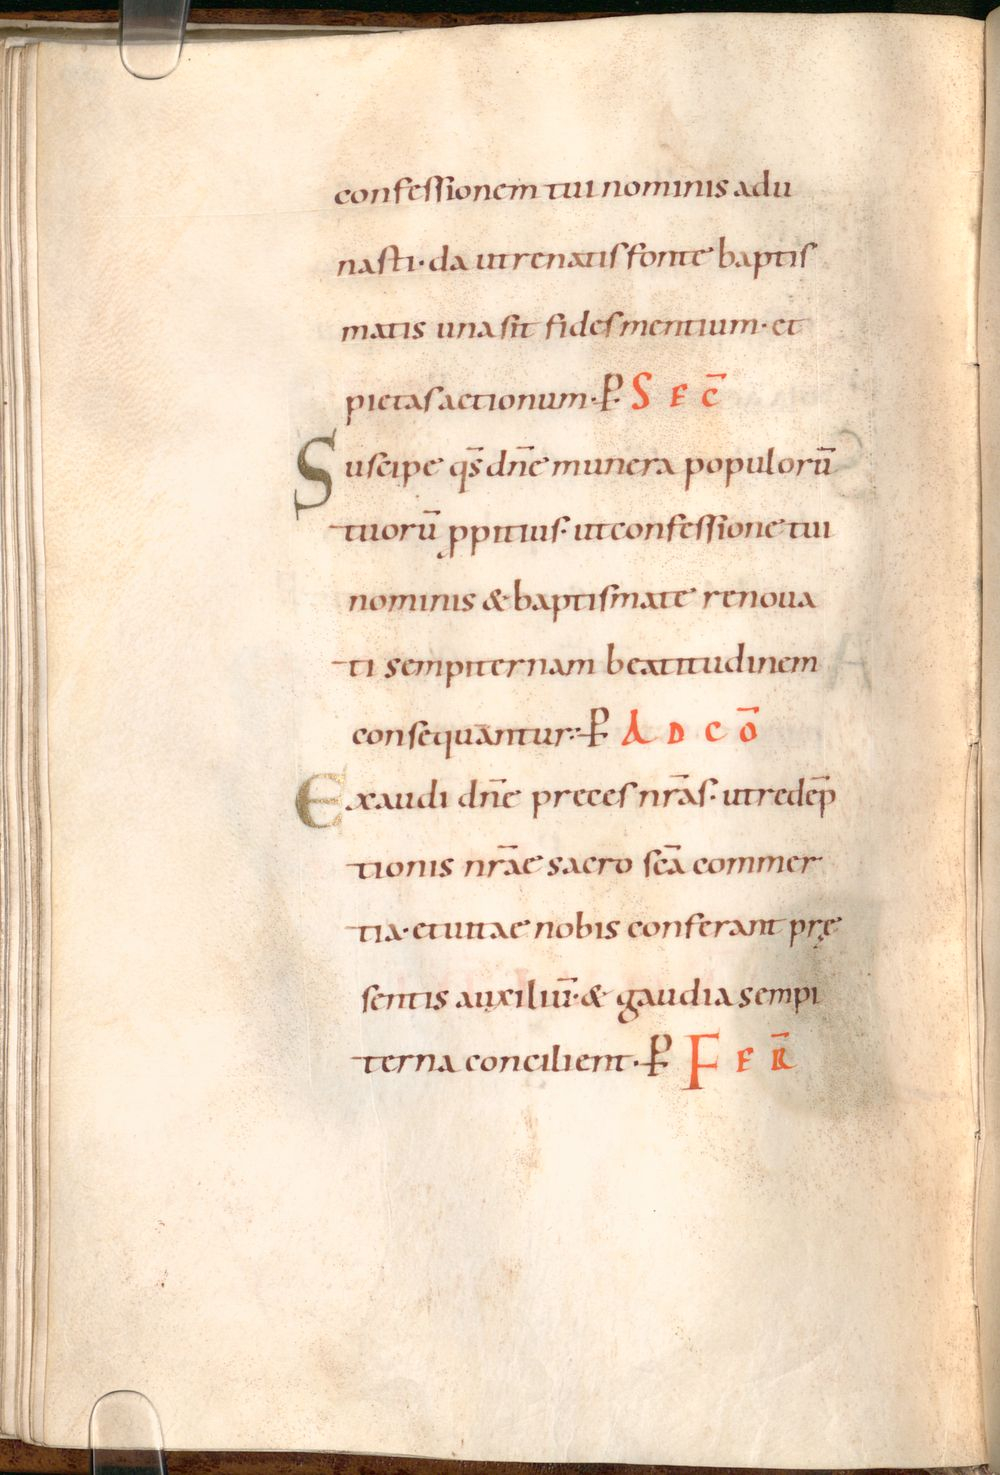 confessionem tui nominis adu
nasti· da ut renatis fonte baptis
matis una sit fides mentium· et
pietas actionum· P̶ SEC̄
Suscipe qs̄ dn̄e munera populorū
tuorū ꝓpitius· ut confessione tui
nominis & baptismate renoua
ti sempiternam beatitudinem
consequantur· P̶ AD CŌ
Exaudi dn̄e preces nr̄as· ut redēp
tionis nr̄ae sacro sc̄a commer
tia· et uitae nobis conferant prę
sentis auxiliū· & gaudia sempi
terna concilient· P̶ FER̄